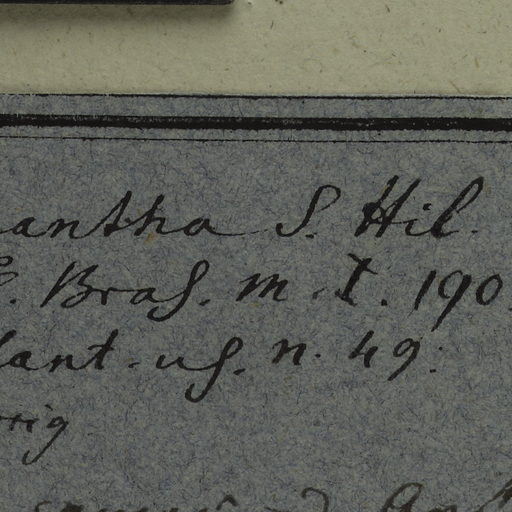 antha S. Hil.
. Bras. m. I. 190.
lant. us. n. 49.
rig